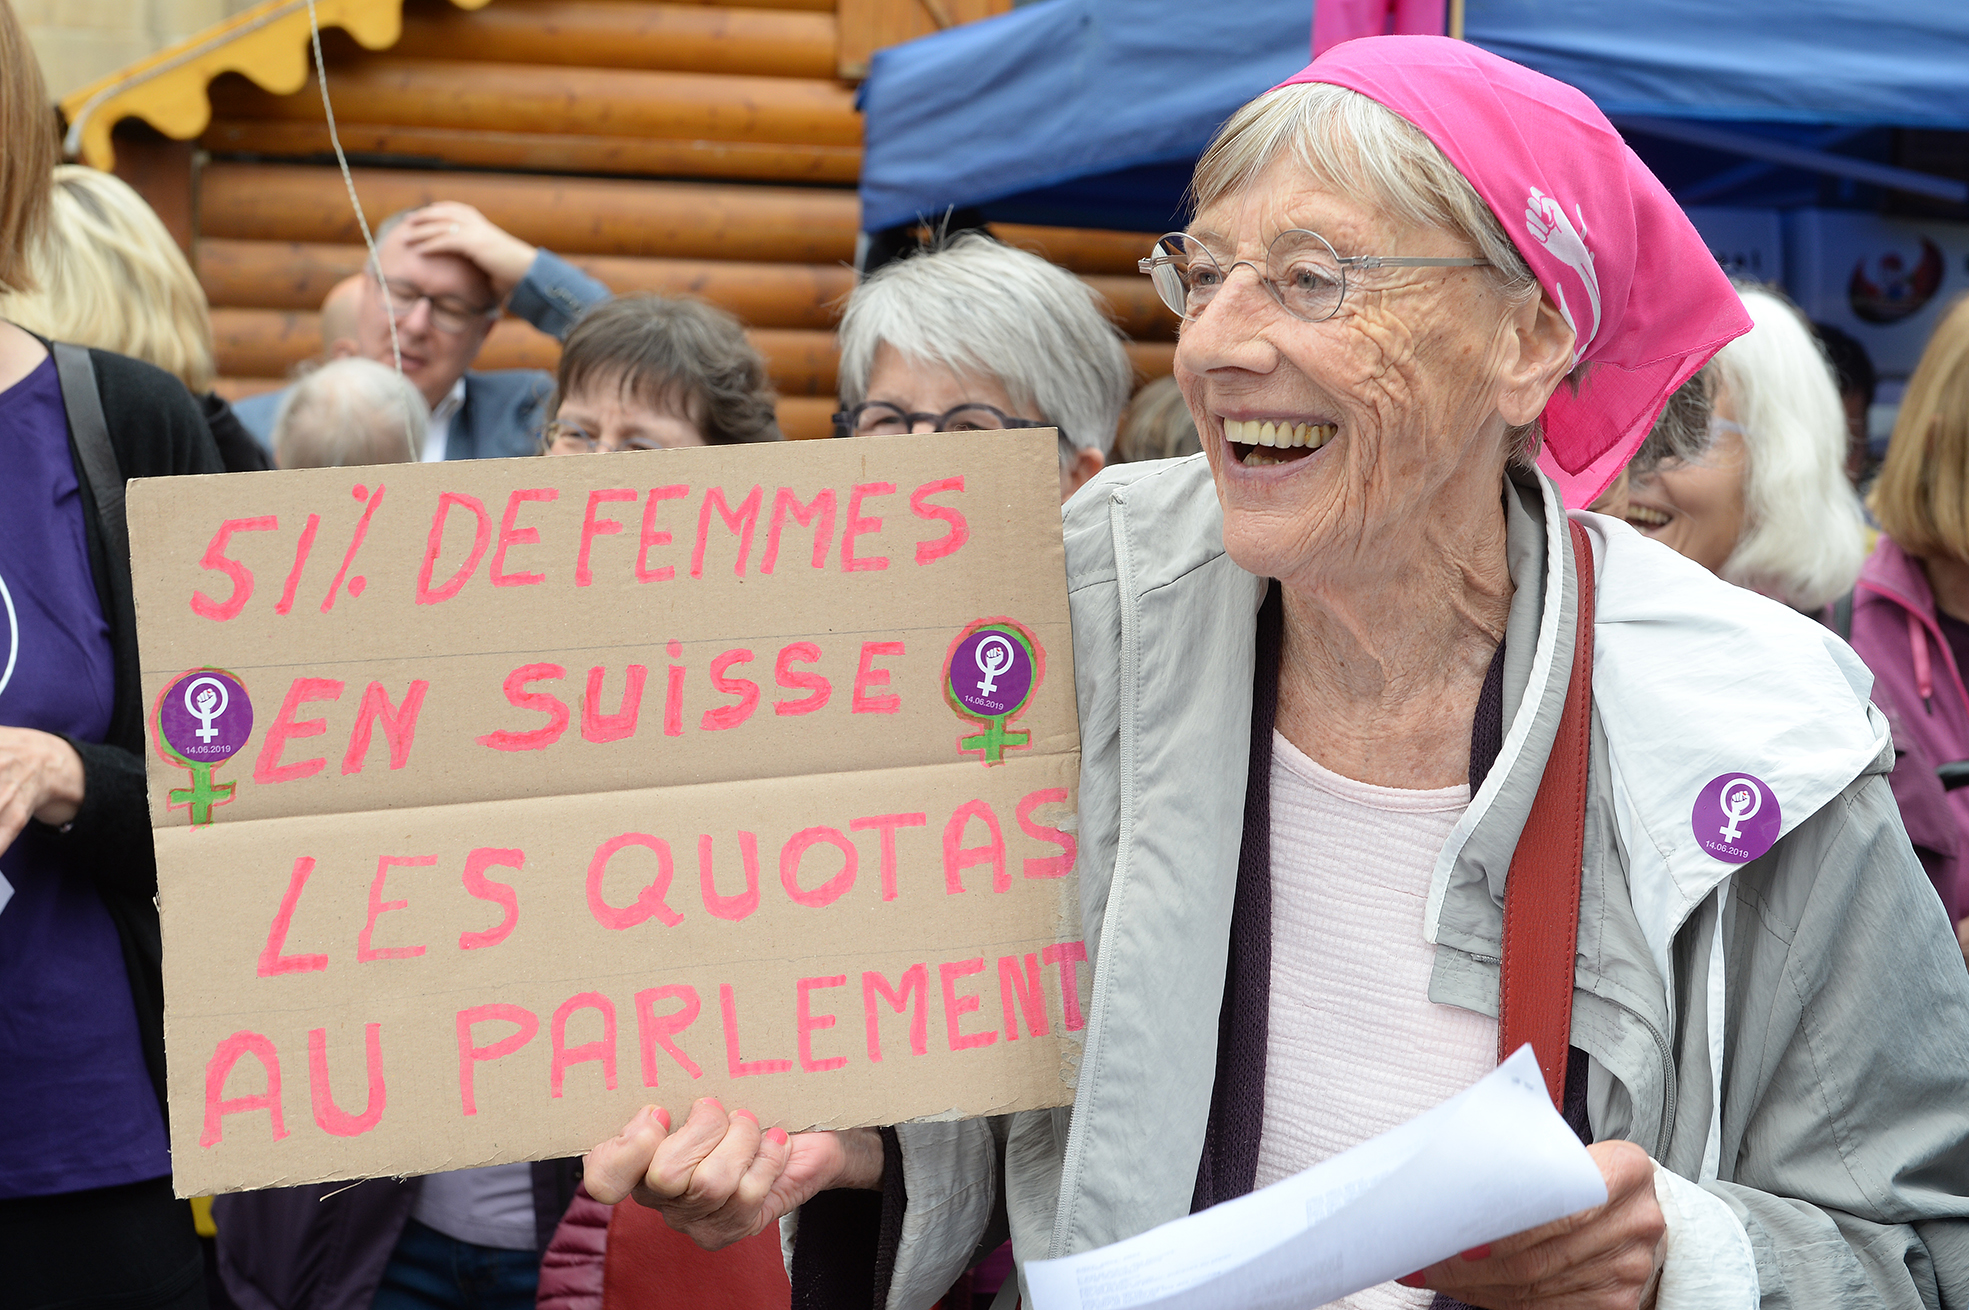 51% DE FEMMES
EN SUISSE
LES QUOTAS
AU PARLEMENT
14.06.2019
14.06.2019
14.06.2019